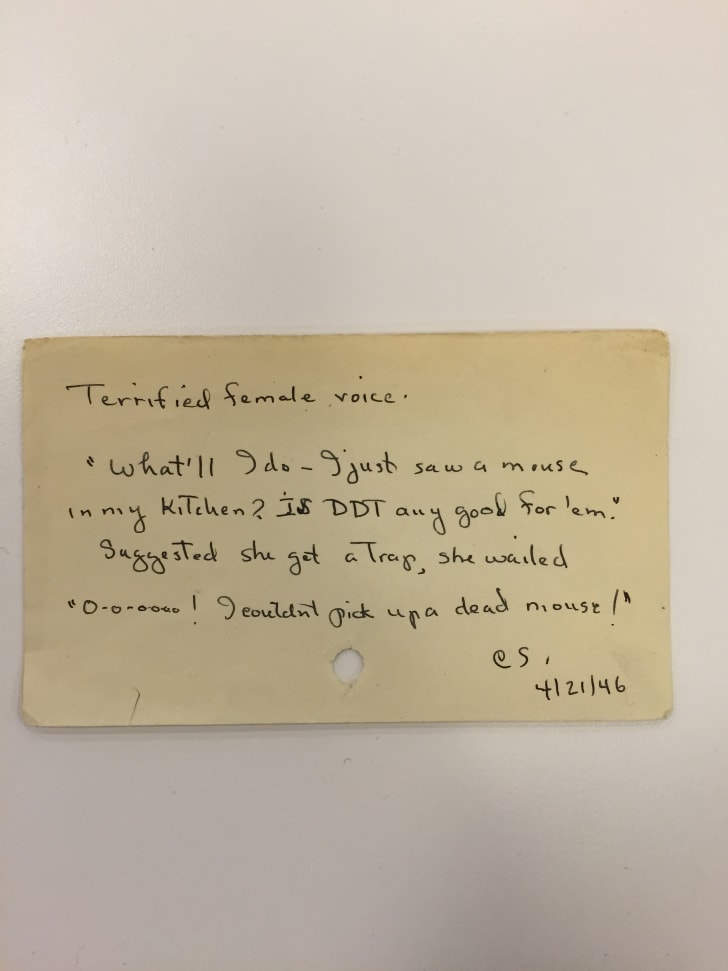 Terrified female voice.
"What'll I do - I just saw a mouse
in my kitchen? Is DDT any good for 'em."
Suggested she get a Trap, she wailed
"O-o-oooo! I couldn't pick up a dead mouse!"
CS.
4/21/46